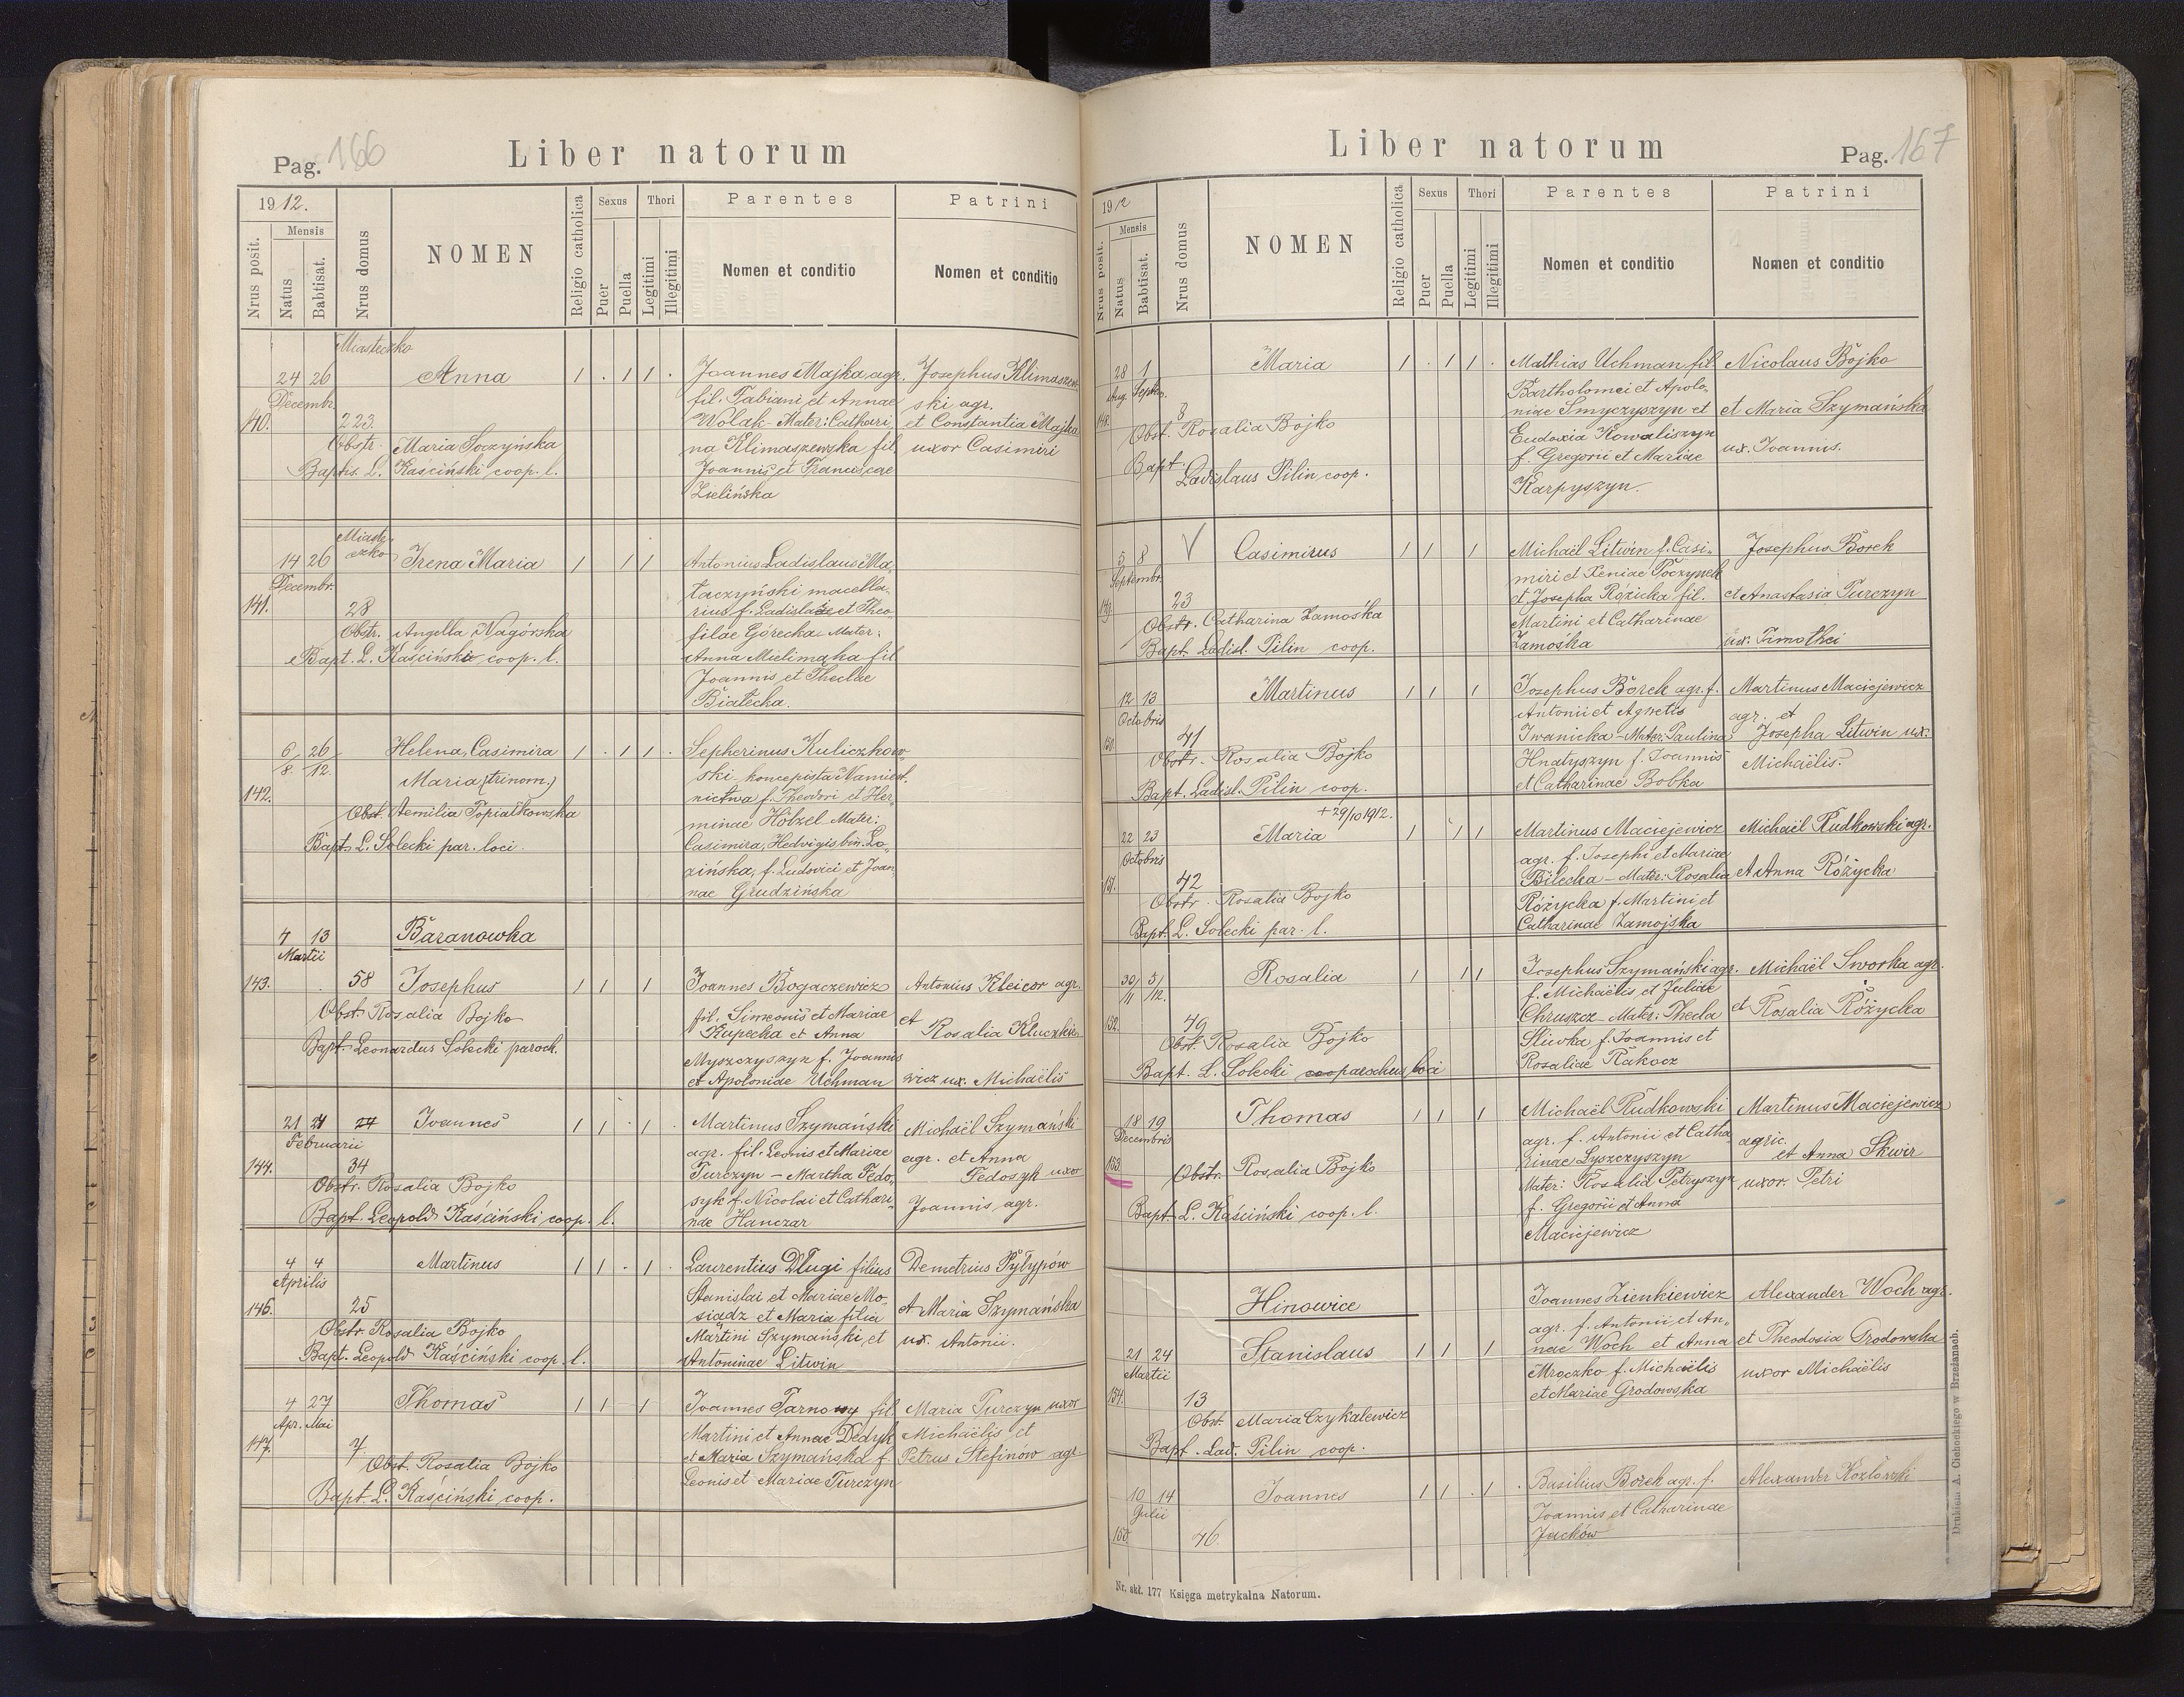 Pag. 166
Liber natorum
1912.
Mensis
Nrus posit.
Natus
Babtisat.
Nrus domus
NOMEN
Religio catholica
Sexus
Puer
Puella
Thori
Legitimi
Illegitimi
Parentes
Nomen et conditio
Patrini
Nomen et conditio
Miasteczko
24 26 Anna 1 . 1 1 . Joannes Majka agr. Josephus Klimaszew-
Decembr. fil. Fabiani et Annae ski agr.
140. 223. Wolak - Mater: Cathari- et Constantia Majka
Obstr. Maria Soczyńska na Klimaszewska fil. uxor Casimiri
Baptis. L. Kaściński coop. l. Joannis et Franciscae
Zielińska
Miaste-
czko
14 26 Irena Maria 1 1 1 Antonius Ladislaus Ma-
Decembr. taczyński macella-
141. 28 rius f. Ladislai et Theo-
Obstr. Angella Nagórska filae Górecka Mater:
Bapt. L. Kaściński coop. l. Anna Mielimąka fil
Joannis et Theclae
Białecka.
6/8. 26/12. Helena, Casimira 1 . 1 1 . Sepherinus Kuliczkow-
Maria (trinom.) ski koncepista Namiest-
142. nictwa f. Theodori et Her-
Obst. Aemilia Popiatkowska minae Hölzel Mater:
Bapt. L. Solecki par. loci. Casimira, Hedvigis bin. Lo-
zińska, f. Ludovici et Joan-
nae Grudzińska
4 13 Baranowka
Martii
143. 58 Josephus 1 1 1 Joannes Bogaczewicz Antonius Kleicor agr.
Obst. Rosalia Bojko fil. Simeonis et Mariae et
Kupecka et Anna Rosalia Kluczkie-
Bapt. Leonardus Solecki paroch. Myszczyszyn f. Joannis
et Apoloniae Uchman wicz ux. Michaëlis
21 21 24 Joannes 1 1 . 1 . Martinus Szymański Michaël Szymański
Februarii agr. fil. Leonis et Mariae agr. et Anna
144. 34 Turczyn - Martha Fedo- Fedosyk uxor
Obstr. Rosalia Bojko syk f. Nicolai et Cathari- Joannis agr.
Bapt. Leopold Kaściński coop. l. nae Hanczar
4 4 Martinus 1 1 . 1 . Laurentius Długi filius Demetrius Pyłypów
Aprilis Stanislai et Mariae Mo-
146. 25 siadz et Maria filia et Maria Szymańska
Obstr. Rosalia Bojko Martini Szymański et ux. Antonii.
Bapt. Leopold Kaściński coop. l. Antoninae Litwin
4 27 Thomas 1 1 1 Joannes Tarnowy fil. Maria Turczyn uxor
Apr. Mai Martini et Annae Dedyk Michaëlis et
147. 7 et Maria Szymańska f. Petrus Stefinow agr.
Obst. Rosalia Bojko Leonis et Mariae Turczyn
Bapt. L. Kaściński coop.
Liber natorum
Pag. 167
1912
Mensis
Nrus posit.
Natus
Babtisat.
Nrus domus
NOMEN
Religio catholica
Sexus
Puer
Puella
Thori
Legitimi
Illegitimi
Parentes
Nomen et conditio
Patrini
Nomen et conditio
28 1 Maria 1 . 1 1 . Mathias Uchman fil. Nicolaus Bojko
Aug. Septbr. Bartholomei et Apolo-
148. 8 niae Smyczyszyn et et Maria Szymańska
Obst. Rosalia Bojko Eudoxia Kowaliszyn
f. Gregorii et Mariae ux. Joannis.
Bapt. Ladislaus Pilin coop. Karpyszyn.
5 8 V Casimirus 1 1 1 Michaël Litwin f. Casi- Josephus Borek
Septembr. miri et Xeniae Poczynek
149. 23 et Josepha Różicka fil. et Anastasia Turczyn
Obstr. Catharina Zamośka Martini et Catharinae
Bapt. Ladisl. Pilin coop. Zamośka ux. Timothei
12 13 Martinus 1 1 1 Josephus Borek agr. f. Martinus Maciejewicz
Octobris Antonii et Agnetis agr. et
150. 41 Iwanicka - Mater: Paulina Josepha Litwin ux.
Obstr. Rosalia Bojko Hnatyszyn f. Joannis Michaëlis.
Bapt. Ladisl. Pilin coop. et Catharinae Bobka
+ 29/10 1912.
22 23 Maria 1 1 1 Martinus Maciejewicz Michaël Rudkowski agr.
Octobris agr. f. Josephi et Mariae
151. 42 Bilecka - Mater: Rosalia et Anna Różycka
Obstr. Rosalia Bojko Różycka f. Martini et
Bapt. L. Solecki par. l. Catharinae Zamojska
30/11 5/12. Rosalia 1 1 1 Josephus Szymański agr. Michaël Sworka agr.
f. Michaëlis et Juliae
152. 49 Chruszcz - Mater: Thecla et Rosalia Różycka
Obst. Rosalia Bojko Sliwka f. Joannis et
Bapt. L. Solecki coo parochus loci Rosaliae Rakocz
18 19 Thomas 1 1 1 Michaël Rudkowski Martinus Maciejewicz
Decembris agr. f. Antonii et Catha- agric.
153 rinae Łyszczyszyn et Anna Skwir
Obstr. Rosalia Bojko Mater: Rosalia Petryszyn uxor Petri
Bapt. L. Kaściński coop. l. f. Gregorii et Anna
Maciejewicz
Hinowice Joannes Zienkiewicz Alexander Woch agr.
agr. f. Antonii et An-
21 24 Stanislaus 1 1 1 nae Woch et Anna et Theodosia Grodowska
Martii Mroczko f. Michaëlis uxor Michaëlis
154. 13 et Mariae Grodowska
Obst. Maria Czykalewicz
Bapt. Lad. Pilin coop.
10 14 Joannes 1 1 . 1 . Basilius Borek agr. f. Alexander Kozłowski
Julii Joannis et Catharinae
155. 46. Jacków
Nr. skł. 177 Księga metrykalna Natorum.
Drukiem A. Cichockiego w Brzeżanach.